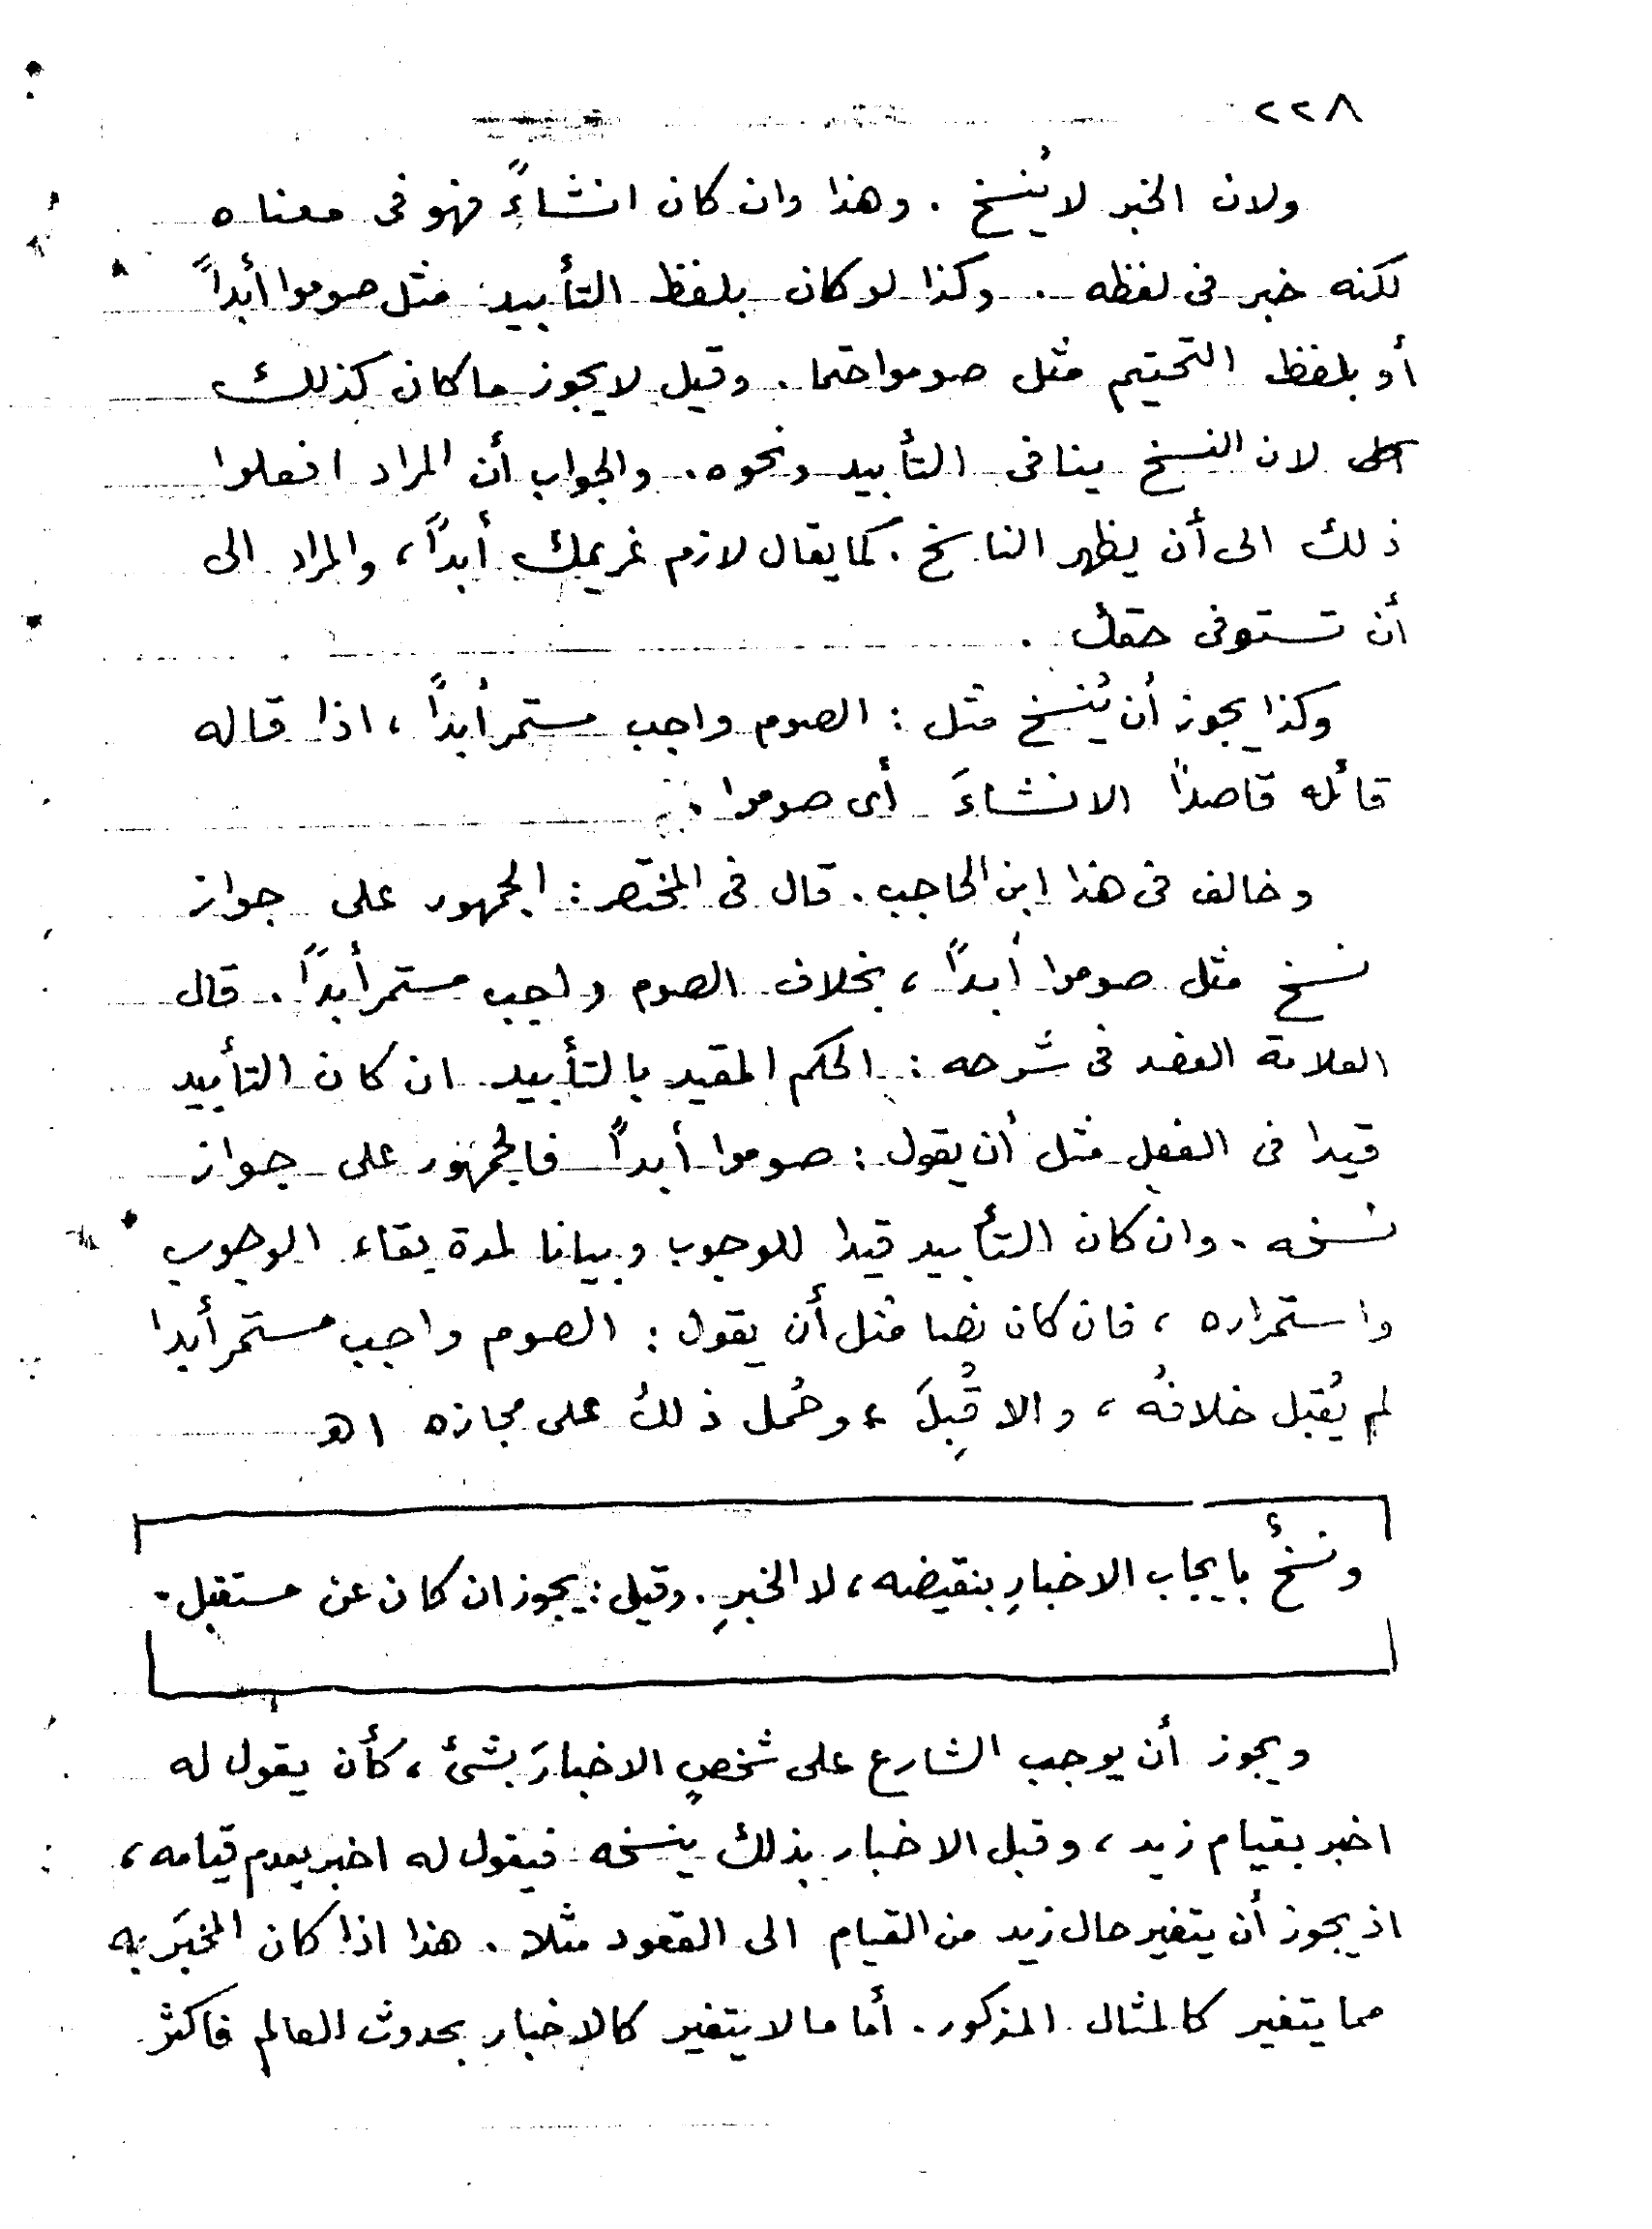 ٢٢٨
ولان الخبر لا يُنسخ . وهذا وان كان انشاءً فهو فى معناه
لكنه خبر فى لفظه . وكذا لو كان بلفظ التأبيد مثل صوموا أبداً
أو بلفظ التحتيم مثل صوموا حتما . وقيل لا يجوز ما كان كذلك
لان النسخ ينافى التأبيد ونحوه . والجواب أن المراد افعلوا
ذلك الى أن يظهر الناسخ . كما يقال لازم غريمك أبداً ، والمراد الى
أن تستوفى حقك .
وكذا يجوز أن يُنسخ مثل : الصوم واجب مستمر أبداً ، اذا قاله
قائله قاصداً الانشاءَ أى صوموا .
وخالف فى هذا ابن الحاجب . قال فى المختصر : الجمهور على جواز
نسخ مثل صوموا أبداً ، بخلاف الصوم واجب مستمر أبداً . قال
العلامة العضد فى شرحه : الحكم المقيد بالتأبيد ان كان التأبيد
قيدا فى الفعل مثل أن يقول : صوموا أبداً فالجمهور على جواز
نسخه . وان كان التأبيد قيدا للوجوب وبيانا لمدة بقاء الوجوب
واستمراره ، فان كان نصا مثل أن يقول : الصوم واجب مستمر أبدا
لم يُقبل خلافهُ ، والا قُبِلَ ، وحُمل ذلك على مجازه اهـ
ونسخُ بايجاب الاخبارِ بنقيضه ، لا الخبرِ . وقيل : يجوز ان كان عن مستقبل -
ويجوز أن يوجب الشارع على شخصٍ الاخبارَ بشئ ، كأن يقول له
اخبر بقيام زيد ، وقبل الاخبار بذلك ينسخه فيقول له اخبر بعدم قيامه ،
اذ يجوز أن يتغير حال زيد من القيام الى القعود مثلا . هذا اذا كان المخبَر به
مما يتغير كالمثال المذكور . أما ما لا يتغير كالاخبار بحدوث العالم فاكثر